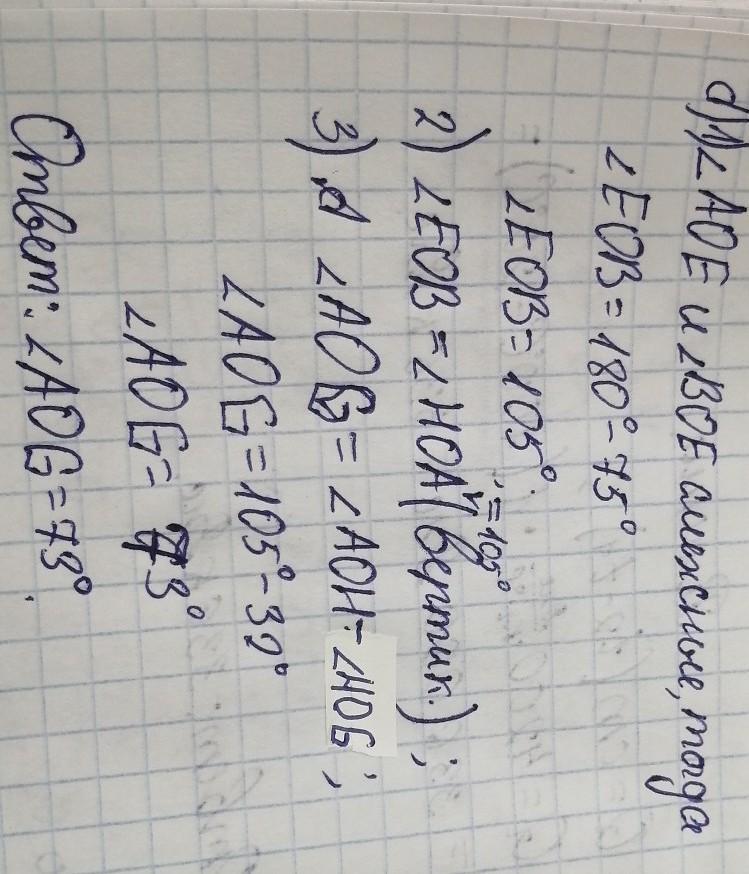 d) 1) ∠AOE и ∠BOE смежные, тогда
∠EOB = 180° - 75°
∠EOB = 105°.
2) ∠EOB = ∠HOA = 105° (вертик.);
3) ∠AOG = ∠AOH - ∠HOG;
∠AOG = 105° - 32°
∠AOG = 73°
Ответ: ∠AOG = 73°.